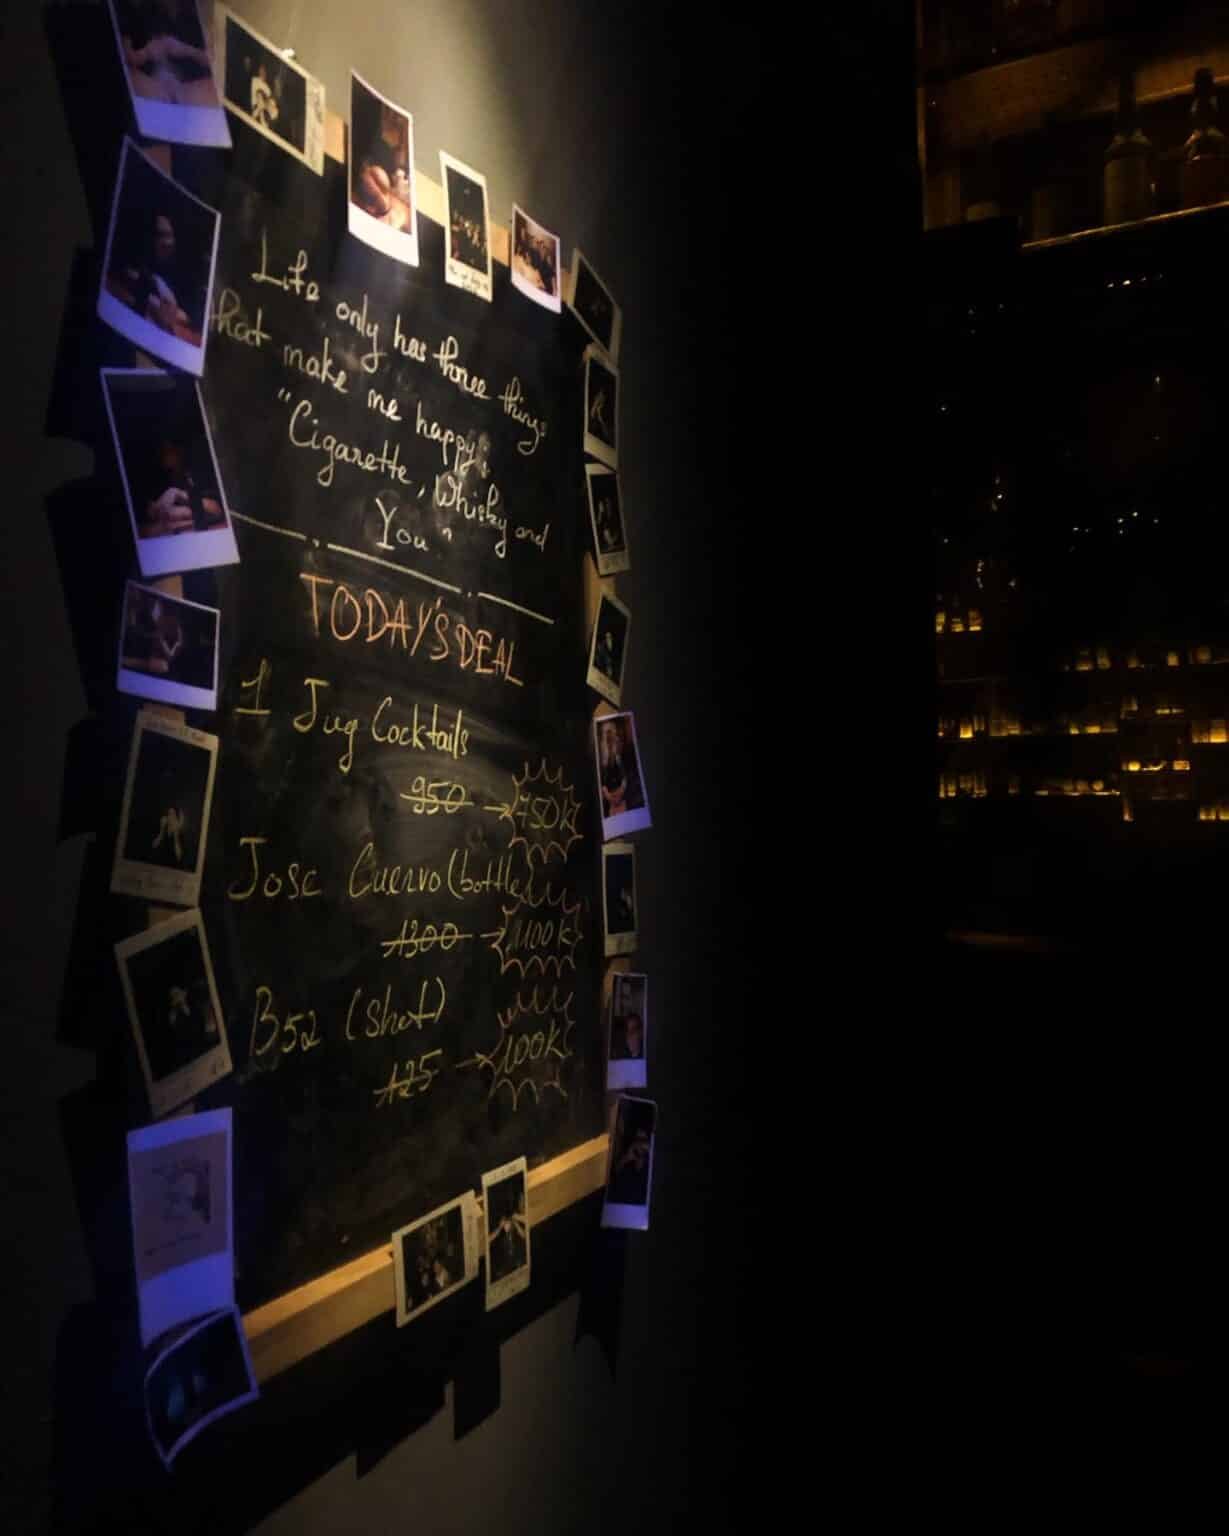 Life only has three things
that make me happy:
"Cigarette, Whisky and
You"
TODAY'S DEAL
1 Jug Cocktails
950 → 750k
Jose Cuervo (bottle)
1300 → 1100k
B52 (shot)
125 → 100k